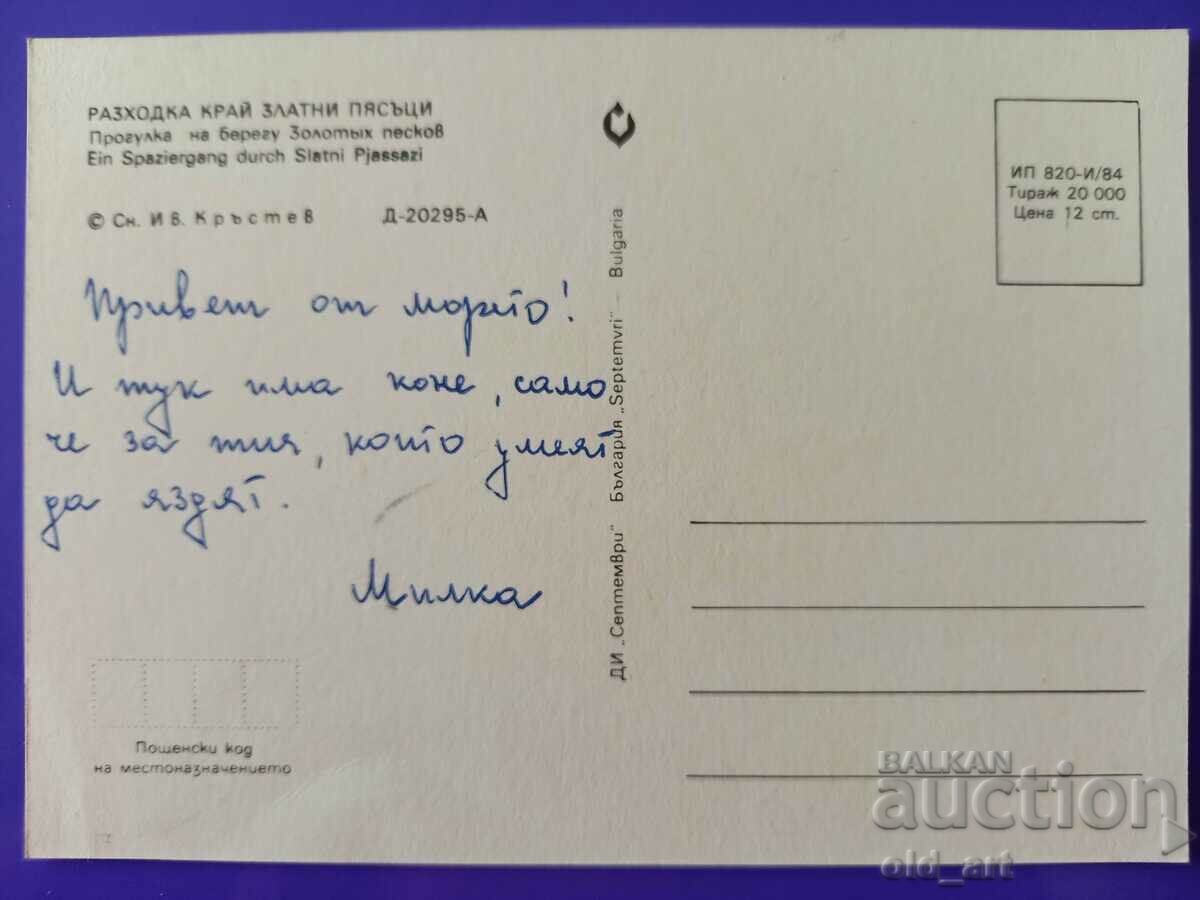 РАЗХОДКА КРАЙ ЗЛАТНИ ПЯСЪЦИ
Прогулка на берегу Золотых песков
Ein Spaziergang durch Slatni Pjassazi
© Сн. Ив. Кръстев Д-20295-А
Привет от морето!
И тук има коне, само
че за тия, които умеят
да яздят.
Милка
Пощенски код
на местоназначението
ДИ „Септември" България „Septemvri" — Bulgaria
ИП 820-И/84
Тираж 20 000
Цена 12 ст.
BALKAN
auction
old_art